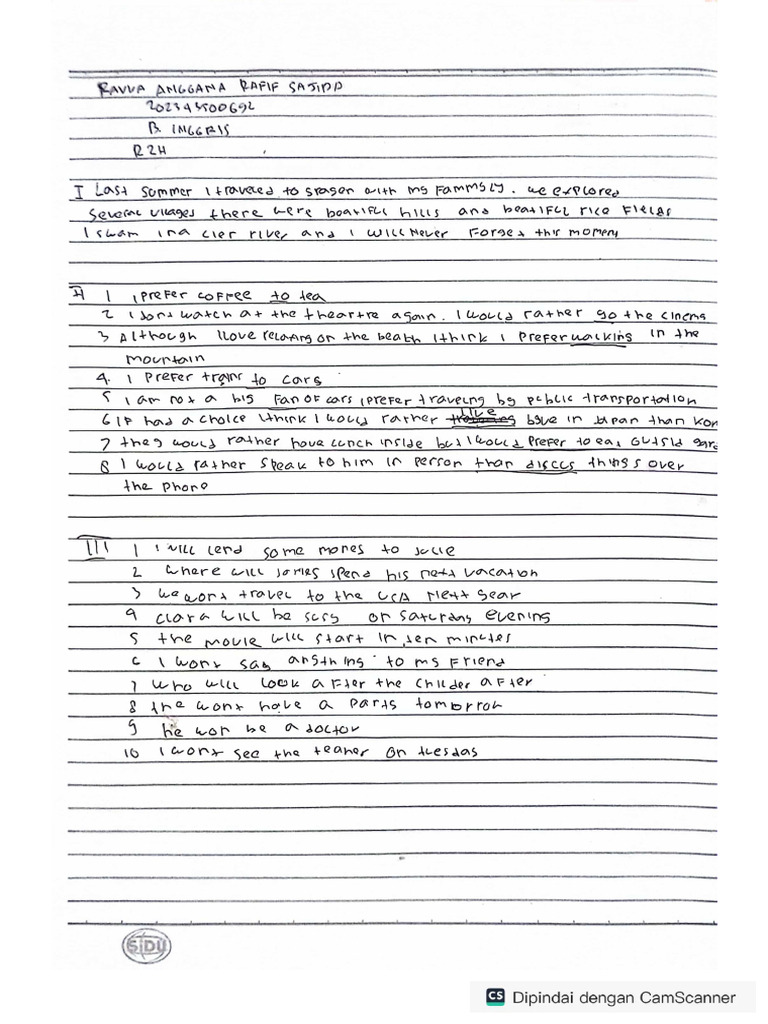 RAVVA ANGGANA RAFIF SAJIDD
202343500692
B. INGGRIS
R2H
I Last summer I traveled to sragen with my Fammsly. we explored
several vilages there were beatiful hills and beatiful rice Fields
I swam in a cler river and I will Never Forget this moment
II 1 I prefer coffee to tea
2 I dont watch at the theartre again. I would rather go the cinema
3 Although I love relaxing on the beath I think I prefer walking in the
mountain
4. I prefer trains to cars
5 I am not a big Fan of cars I prefer traveling by public transportation
6 IF had a choice I think I would rather live in Japan than Kor
7 they would rather have lunch inside but I would prefer to eat outsid
8 I would rather speak to him in person than discus things over
the phone
III 1 I will lend some money to Julie
2 where will James spend his next vacation
3 we wont travel to the USA next year
4 Clara will be busy on Saturday evening
5 the movie will start in ten minutes
6 I wont say anything to my Friend
7 who will look after the childer after
8 the wont have a party tomorrow
9 he won be a doctor
10 I wont see the teaher on tuesday
SIDU
CS Dipindai dengan CamScanner